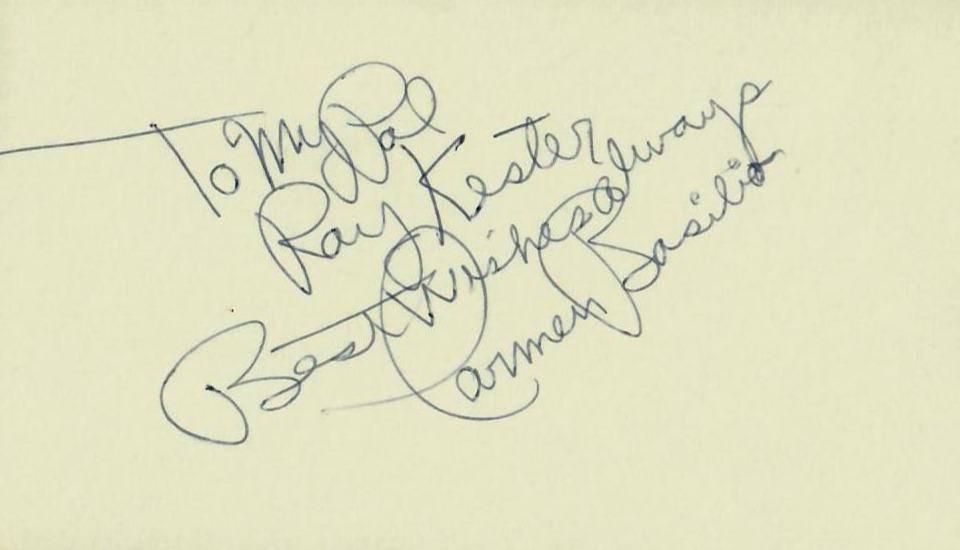 To My Pal
Ray Kester
Best Wishes always
Carmen Basilio